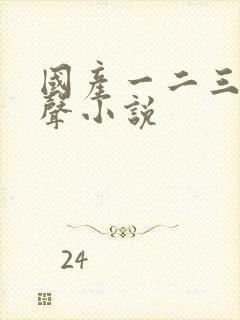 國產一二三
聲小說
24